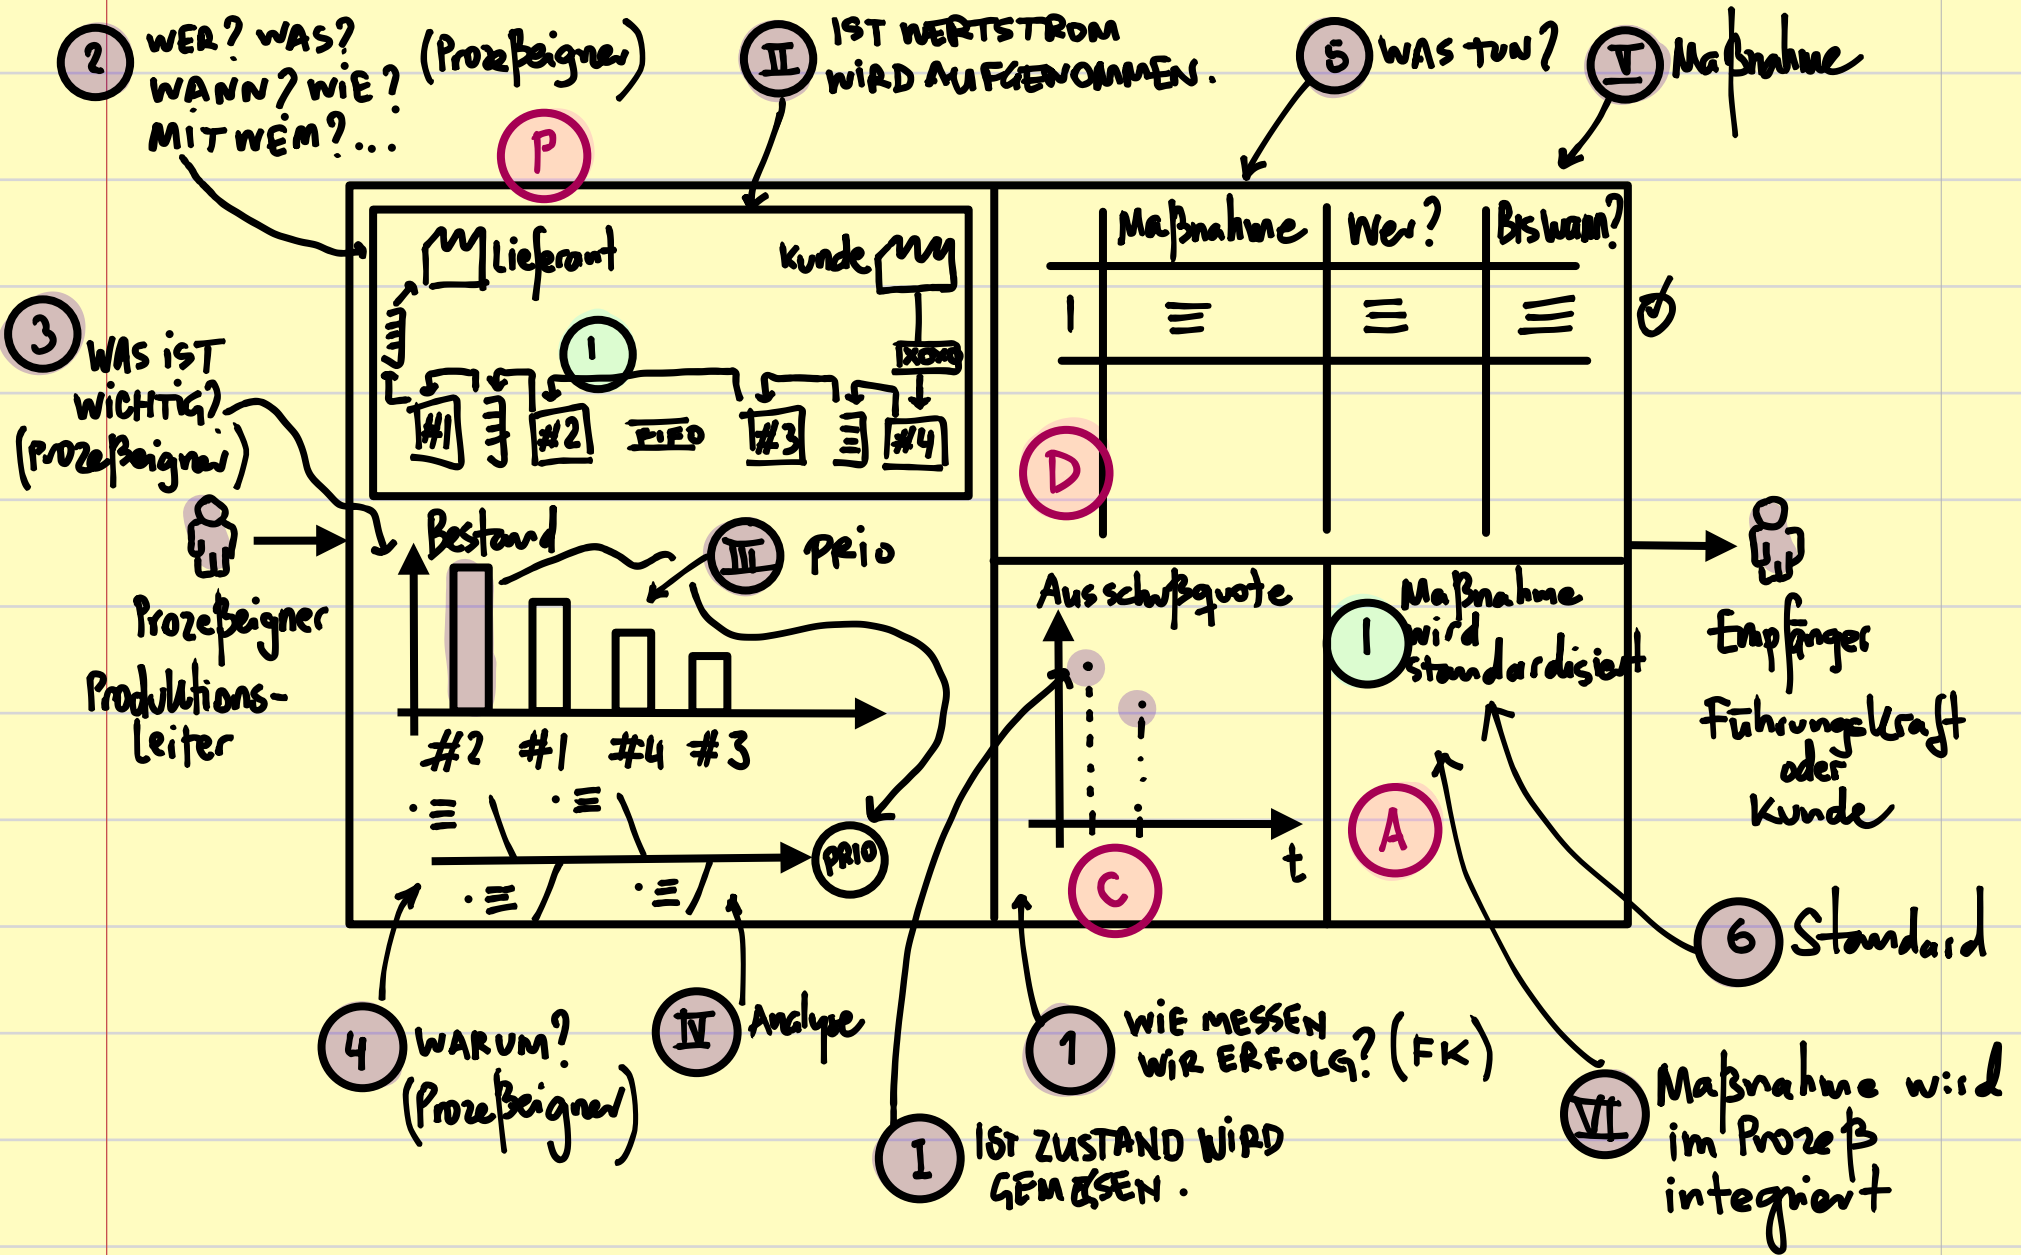 2
WER? WAS?
WANN? WIE?
MIT WEM?...
(Prozeßeigner)
II
IST WERTSTROM
WIRD AUFGENOMMEN.
5
WAS TUN?
V
Maßnahme
P
Lieferant
Kunde
1
IXOXO
#1
#2
FIFO
#3
#4
Maßnahme
Wer?
Bis wann?
1
D
3
WAS IST
WICHTIG?
(Prozeßeigner)
Prozeßeigner
Produktions-
Leiter
Bestand
III
PRIO
#2
#1
#4
#3
PRIO
Ausschußquote
t
C
1
Maßnahme
wird
standardisiert
A
Empfänger
Führungskraft
oder
Kunde
6
Standard
4
WARUM?
(Prozeßeigner)
IV
Analyse
1
WIE MESSEN
WIR ERFOLG? (FK)
I
IST ZUSTAND WIRD
GEMESSEN.
VI
Maßnahme wird
im Prozeß
integriert